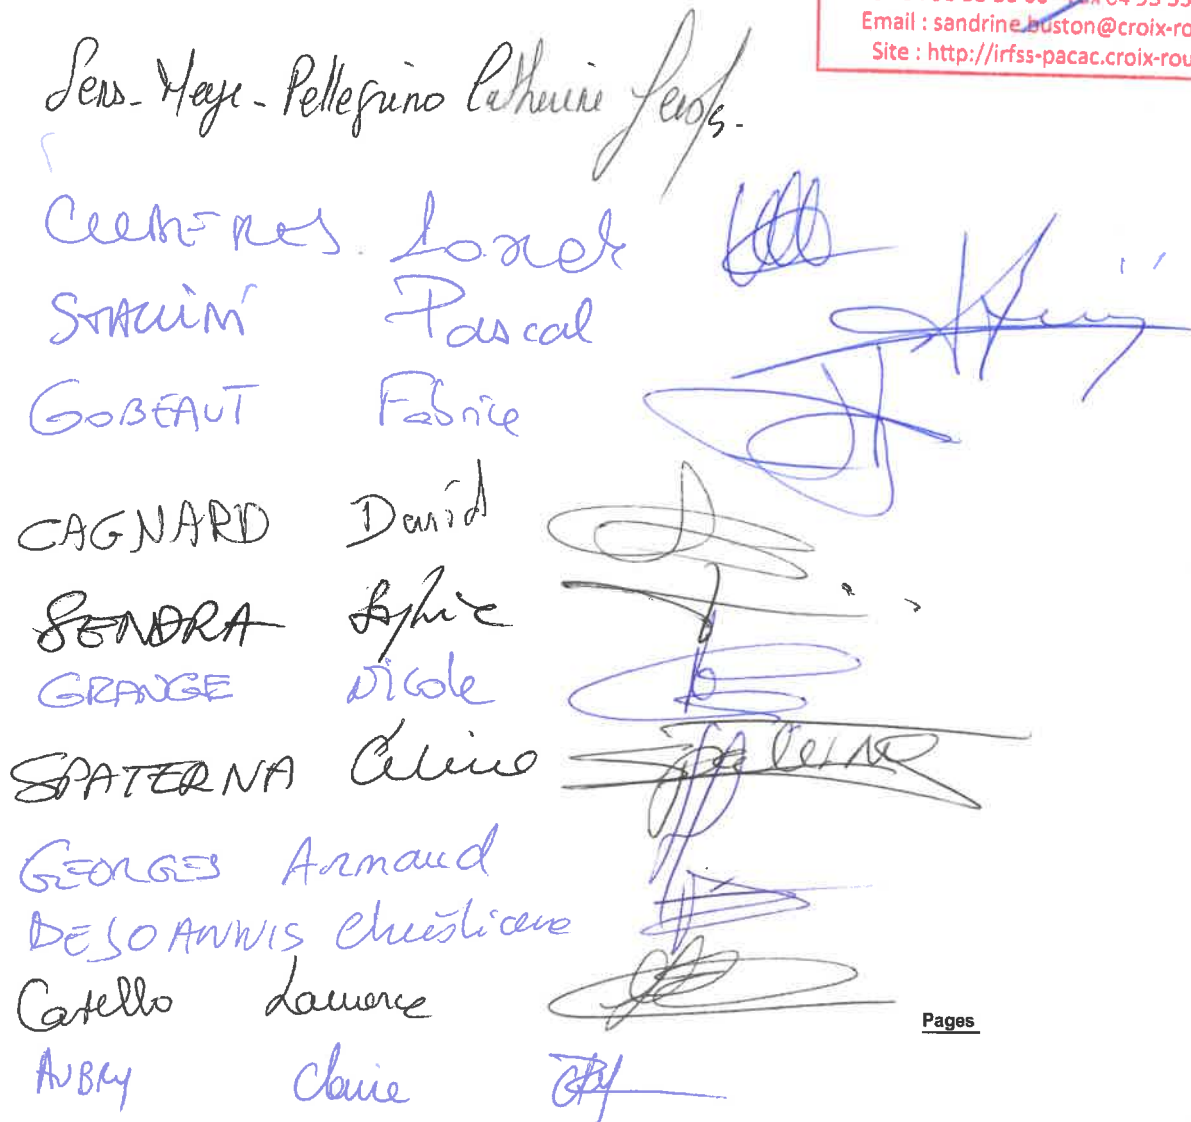 Email : sandrine.buston@croix-ro
Site : http://irfss-pacac.croix-rou
Sens-Meye-Pellegrino Catherine
Pascal
GOBEAUT Fabrice
CAGNARD David
SENDRA Sophie
GRANGE Nicole
SPATERNA Céline
GEORGES Arnaud
DEJOANNIS Christiane
Castello Laurence
Pages
AUBRY Claire